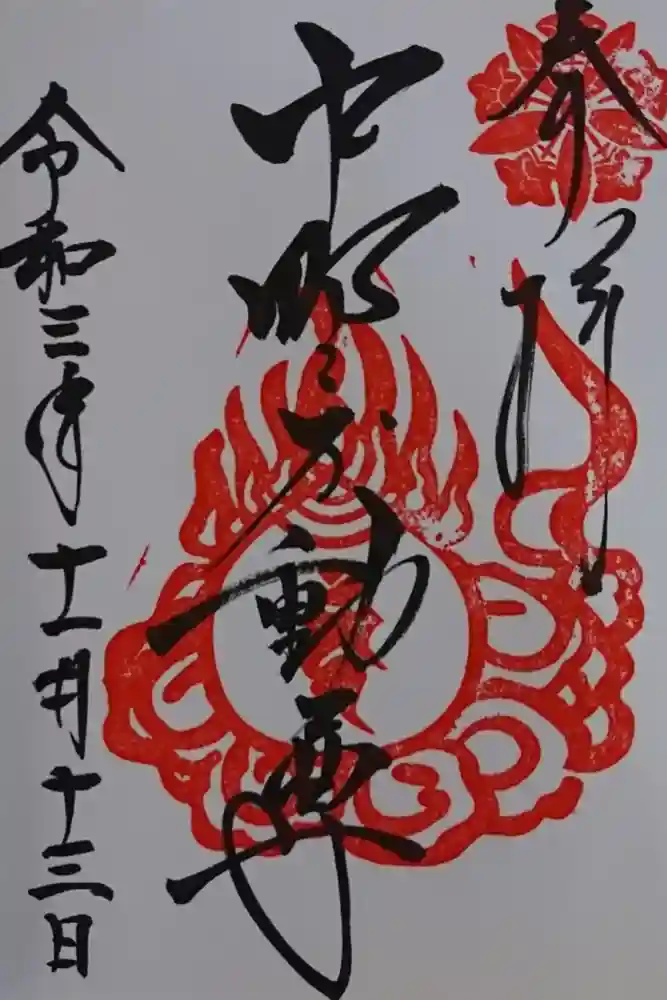 奉拝
中 不動尊
令和三年十一月十三日